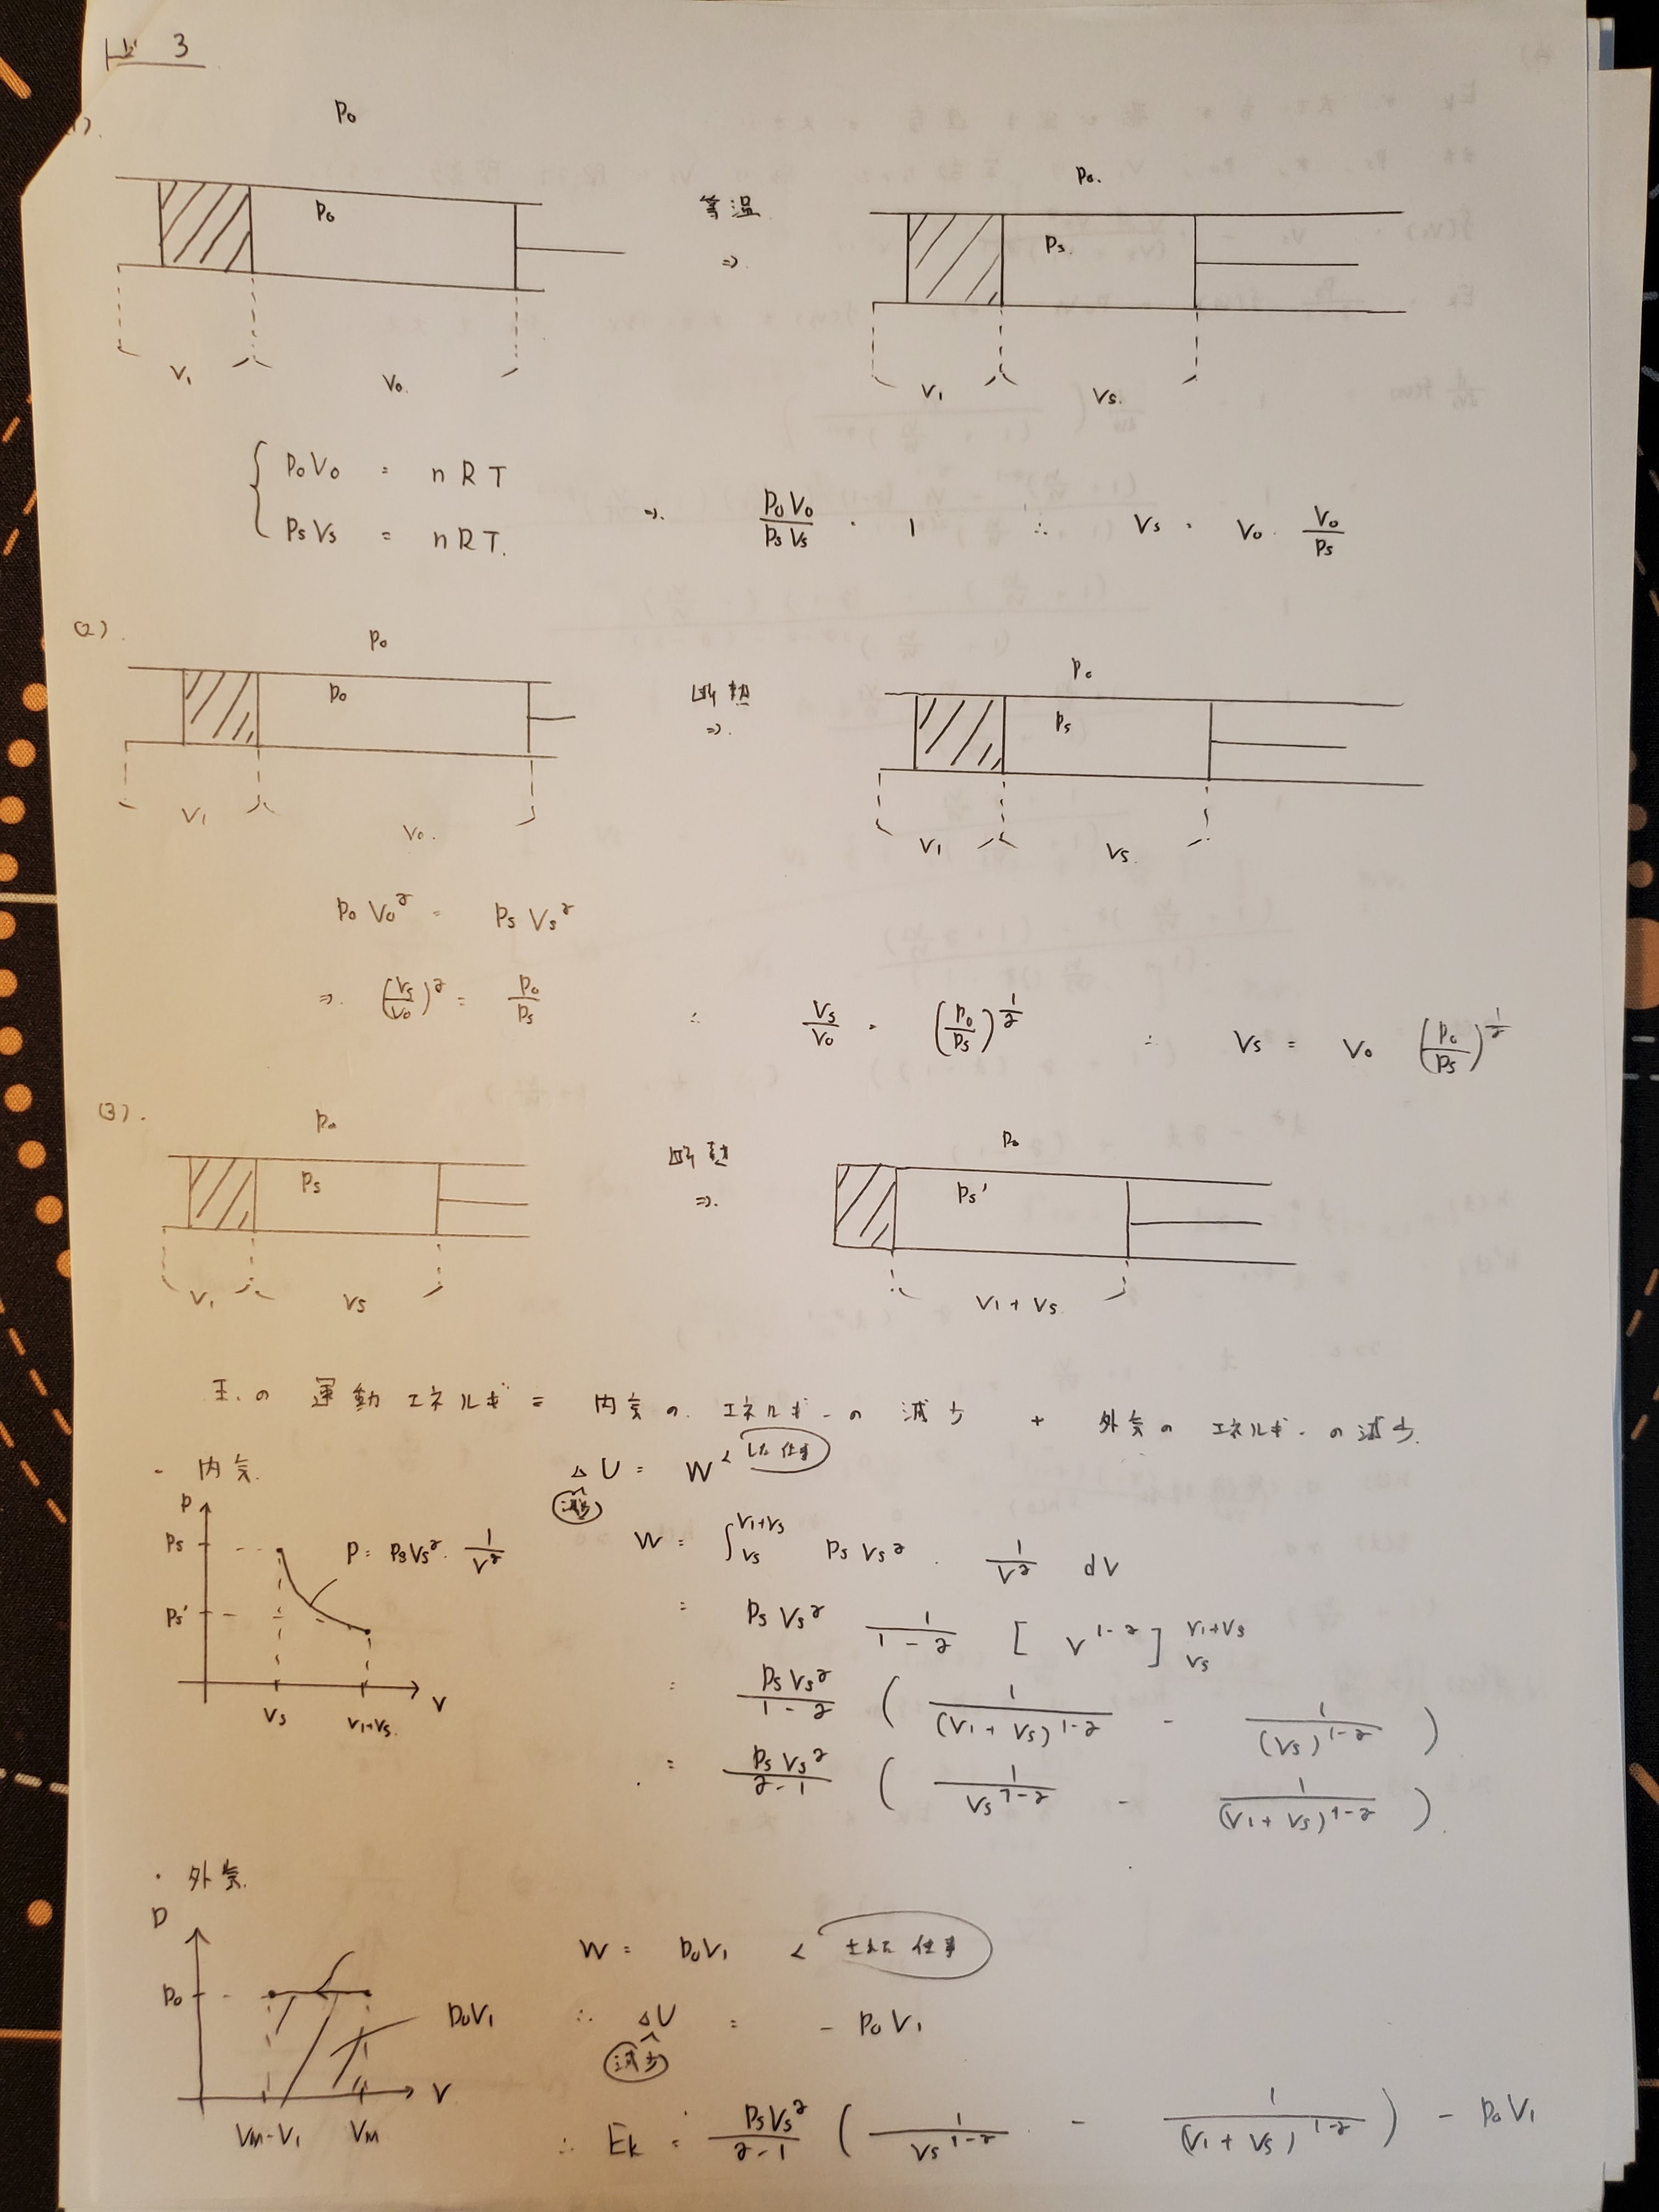 問 3
(1).
p₀
p₀ 等温 ⇒ p₀.
pₛ
V₁ V₀. V₁ Vₛ.
{ p₀V₀ = nRT
pₛVₛ = nRT.
⇒. p₀V₀/pₛVₛ = 1 ∴ Vₛ = V₀ · V₀/pₛ
(2).
p₀
p₀ 断熱 ⇒. p₀
pₛ
V₁ V₀. V₁ Vₛ.
p₀V₀^γ = pₛVₛ^γ
⇒. (Vₛ/V₀)^γ = p₀/pₛ ∴ Vₛ/V₀ = (p₀/pₛ)^(1/γ) ∴ Vₛ = V₀ (p₀/pₛ)^(1/γ)
(3).
p₀
pₛ 断熱 ⇒. p₀
pₛ'
V₁ Vₛ V₁+Vₛ
玉の 運動エネルギ = 内気の エネルギーの 減少 + 外気の エネルギーの減少.
- 内気. ΔU = W < した仕事
減少
p
pₛ
pₛ'
Vₛ V₁+Vₛ. V
p = pₛVₛ^γ · 1/V^γ
W = ∫_{Vₛ}^{V₁+Vₛ} pₛVₛ^γ · 1/V^γ dV
= pₛVₛ^γ 1/(1-γ) [ V^(1-γ) ]_{Vₛ}^{V₁+Vₛ}
= pₛVₛ^γ/(1-γ) ( 1/(V₁+Vₛ)^(1-γ) - 1/(Vₛ)^(1-γ) )
= pₛVₛ^γ/(γ-1) ( 1/Vₛ^(1-γ) - 1/(V₁+Vₛ)^(1-γ) ).
・外気.
p
p₀
p₀V₁
V_M-V₁ V_M V
W = p₀V₁ < された仕事
∴ ΔU = - p₀V₁
減少
∴ Eₖ = pₛVₛ^γ/(γ-1) ( 1/Vₛ^(1-γ) - 1/(V₁+Vₛ)^(1-γ) ) - p₀V₁